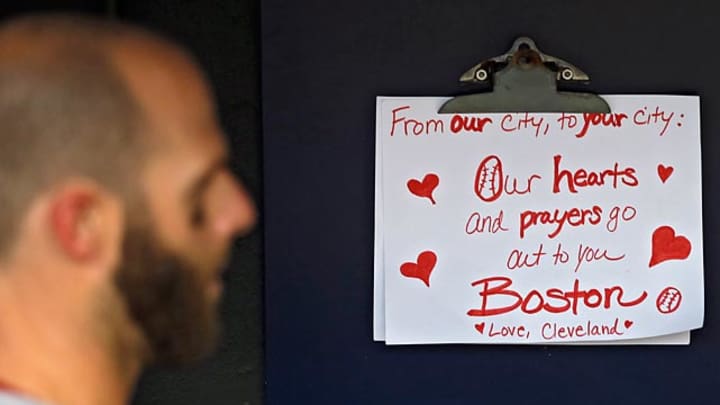 From our city, to your city:
Our hearts
and prayers go
out to you
Boston
Love, Cleveland